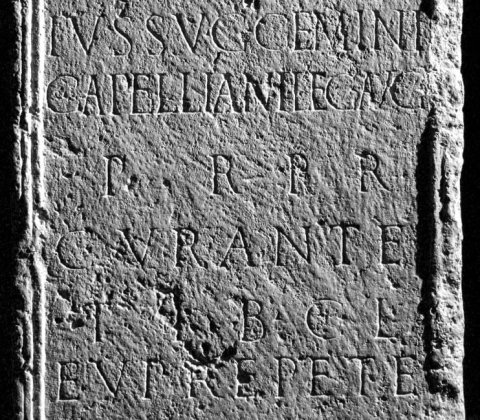 IVSSVGGEMINI
CAPELLIANILEGAVG
P R P R
CVRANTE
TIB CL
EVPREPETE